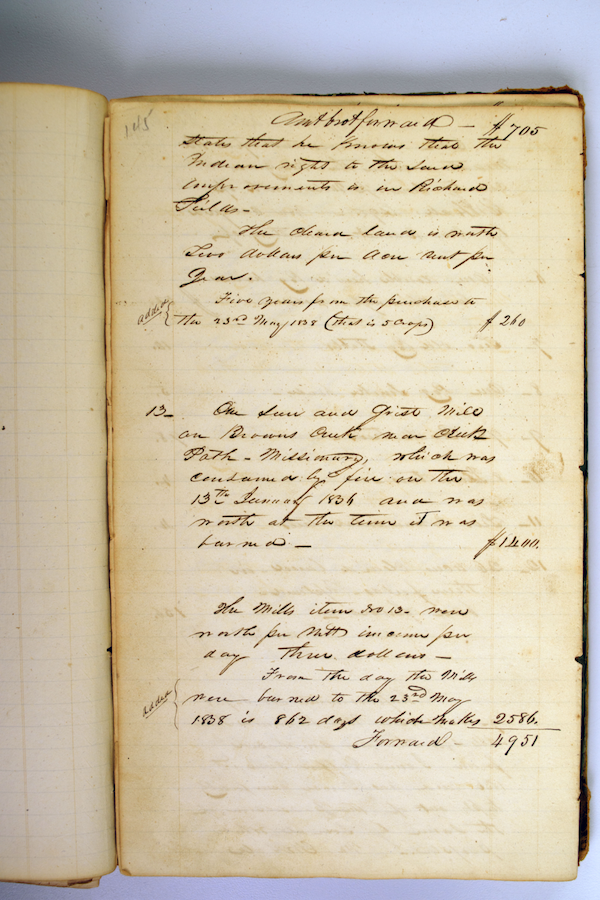 145
Amt brot forward — $705
States that he knows that the
Indian right to the Land
improvements is in Richard
Fields —
The cleared land is worth
Two dollars per acre rent per
Year.
added
Five years from the purchase to
the 23rd May 1838 (that is 5 Crops) $260
13 — One Saw and Grist Mill
on Browns Creek near Creek
Path — Missionary, which was
consumed by fire on the
13th January 1836 and was
worth at the time it was
burned — $1400.
The Mills item No 13 — were
worth per Nett income per
day three dollars —
added
From the day the Mills
were burned to the 23rd May
1838 is 862 days which makes 2586.
Forward 4951